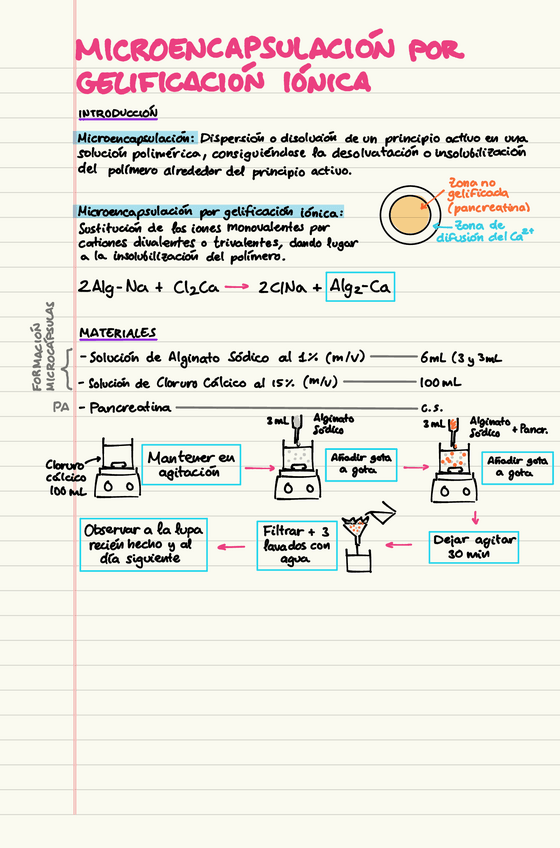 MICROENCAPSULACIÓN POR
GELIFICACIÓN IÓNICA
INTRODUCCIÓN
Microencapsulación: Dispersión o disolución de un principio activo en una
solución polimérica, consiguiéndose la desolvatación o insolubilización
del polímero alrededor del principio activo.
Microencapsulación por gelificación iónica:
Sustitución de los iones monovalentes por
cationes divalentes o trivalentes, dando lugar
a la insolubilización del polímero.
Zona no
gelificada
(pancreatina)
Zona de
difusión del Ca²⁺
2Alg-Na + Cl₂Ca → 2ClNa + Alg₂-Ca
MATERIALES
FORMACIÓN
MICROCÁPSULAS
- Solución de Alginato Sódico al 1% (m/v) 6mL (3 y 3mL
- Solución de Cloruro Cálcico al 15% (m/v) 100mL
PA - Pancreatina c.s.
Cloruro
cálcico
100 mL
Mantener en
agitación
3mL Alginato
Sódico
Añadir gota
a gota
3mL Alginato
Sódico + Pancr.
Añadir gota
a gota
Dejar agitar
30 min
Filtrar + 3
lavados con
agua
Observar a la lupa
recién hecho y al
día siguiente